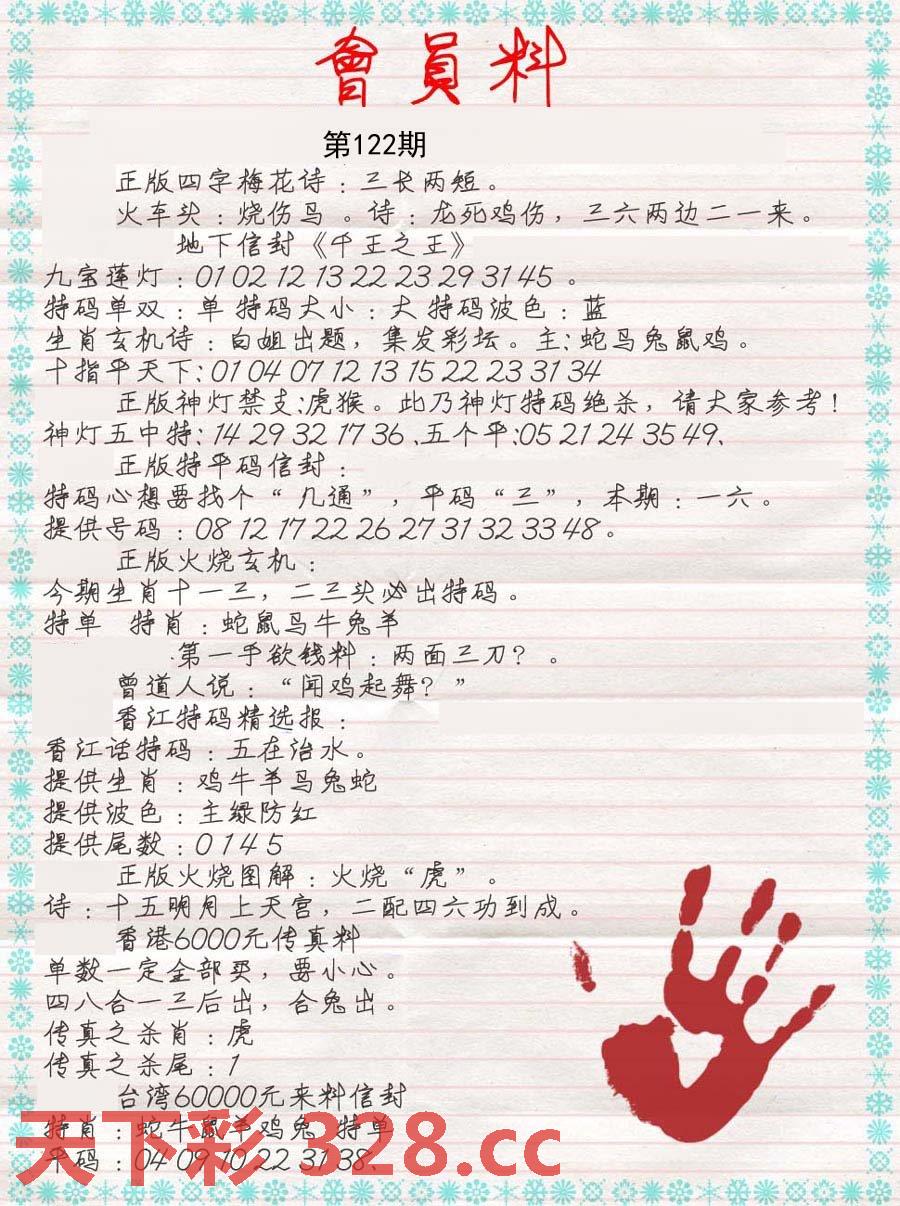 會員料
第122期
正版四字梅花诗：三长两短。
火车头：烧伤鸟 。诗：龙死鸡伤，三六两边二一来。
地下信封《千王之王》
九宝莲灯：01 02 12 13 22 23 29 31 45 。
特码单双：单 特码大小：大 特码波色：蓝
生肖玄机诗：白姐出题，集发彩坛。主：蛇马兔鼠鸡。
十指平天下：01 04 07 12 13 15 22 23 31 34
正版神灯禁支:虎猴。此乃神灯特码绝杀，请大家参考！
神灯五中特：14 29 32 17 36 、五个平:05 21 24 35 49、
正版特平码信封：
特码心想要找个“ 几通”，平码“三”，本期：一六。
提供号码：08 12 17 22 26 27 31 32 33 48。
正版火烧玄机：
今期生肖十一三，二三头必出特码。
特单 特肖：蛇鼠马牛兔羊
.第一手欲钱料：两面三刀？。
曾道人说：“闻鸡起舞？”
香江特码精选报：
香江话特码：五在治水。
提供生肖：鸡牛羊马兔蛇
提供波色：主绿防红
提供尾数：0 1 4 5
正版火烧图解：火烧“虎”。
诗：十五明月上天宫，二配四六功到成。
香港6000元传真料
单数一定全部买，要小心。
四八合一三后出，合兔出。
传真之杀肖：虎
传真之杀尾：1
台湾60000元来料信封
特肖：蛇牛鼠羊鸡兔 特单
平码：04 09 10 22 31 38、
天下彩 328.cc